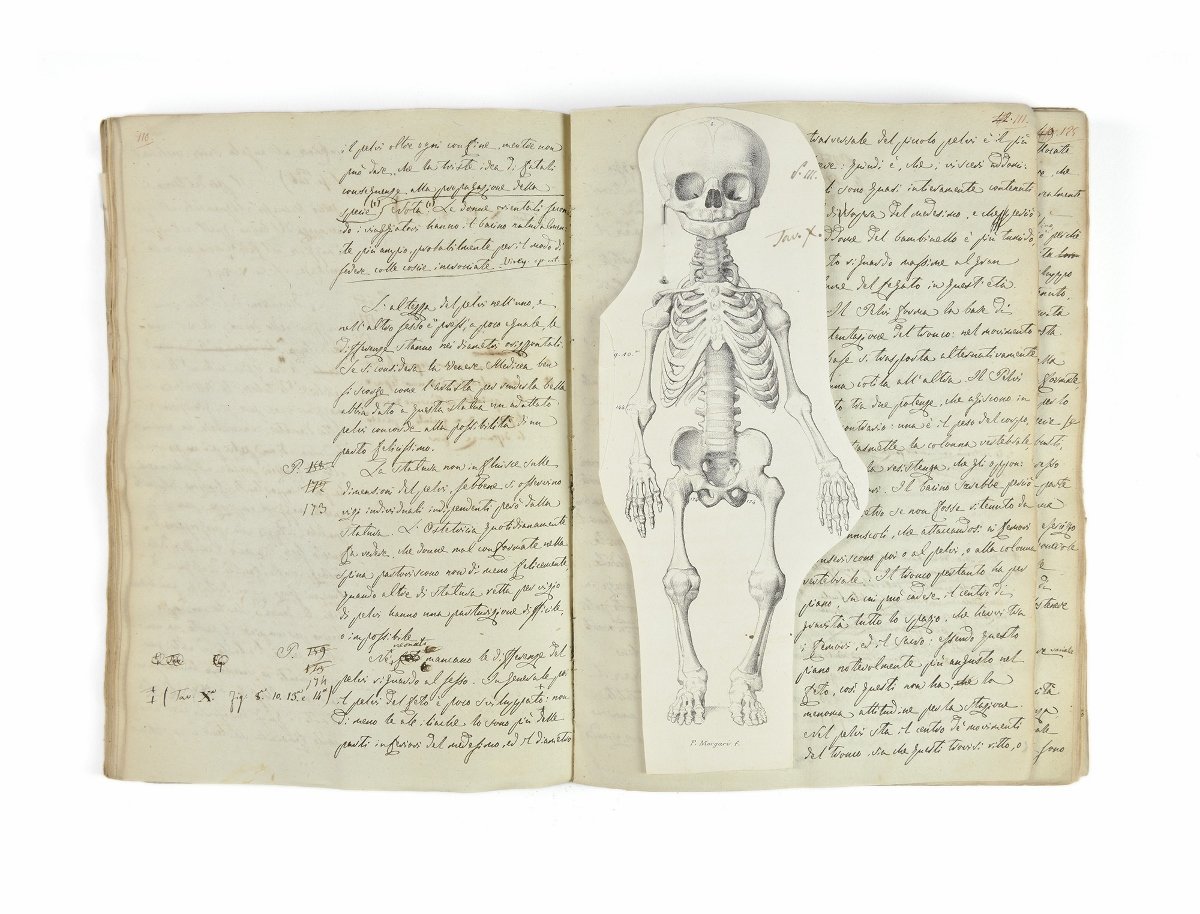 110.
il pelvi oltre ogni confine, mentre non
può dare, che la triste idea di fatali
conseguenze alla propagazione della
specie (1) Nota (1) Le donne orientali secon-
do i viaggiatori hanno il bacino naturalmen-
te più ampio, probabilmente per il modo di
sedere colle coscie incrociate. Virey op. cit.
L'altezza del pelvi nell'uno, e
nell'altro sesso è press, a poco eguale, le
differenze stanno nei diametri orizzontali.
Se si considera la Venere Medicea ben
si scorge come l'artista per modesta bella
abbia dato a questa statua un adattato
pelvi concorde alla possibilità di un
parto felicissimo.
P. 172
173
La statura non influisce sulle
dimensioni del pelvi, sebbene si osservino
vizi individuali indipendenti però dalla
statura. L'Ostetricia quotidianamente
fa vedere, che donne mal conformate nella
spina partoriscono non di meno felicemente
quando altre di statura retta per vizio
di pelvi hanno una partorizione difficile,
o impossibile
P. 159
174
neonato
Nel mancano le differenze del
pelvi riguardo al sesso. In generale poi
(Tav. X. Fig. 5. 10. 15. e 18)
il pelvi del feto è poco sviluppato: non
di meno le ale iliache lo sono più delle
parti inferiori del medesimo, ed il diametro
111.
trasversale del piccolo pelvi è il più
breve: quindi è, che i visceri addomi-
sono quasi interamente contenuti
di sopra del medesimo, e che perciò
addome del bambinello è più tumido,
riguardo massime al gran
del fegato in quest'età.
Il Pelvi forma la base di
sostentazione del tronco: nel movimento
base si trasporta alternativamente
una cotila all'altra. Il Pelvi
tra due potenze, che agiscono in
contrario: una è il peso del corpo,
trasmette la colonna vertebrale,
la resistenza, che gli oppon:
Il bacino sarebbe perciò
se non fosse ritenuto da
muscoli, che attaccandosi ai femori
inseriscono poi o al pelvi, o alla colonna
vertebrale. Il tronco pertanto ha per
piano, su cui può cadere il centro di
gravità tutto lo spazio, che havvi tra
i femori, ed il sacro: essendo questo
piano notevolmente più angusto nel
feto, così questi non ha, che la
menoma attitudine per la stazione
Nel pelvi sta il centro de' movimenti
del tronco, sia che questi trovisi ritto, o
Tav. X.
P. Morgari f.